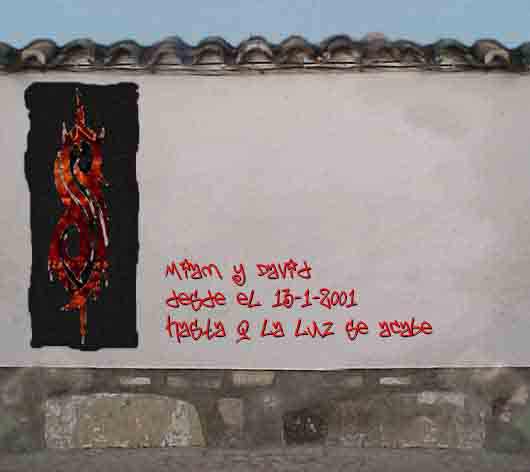 Miam y David
desde el 13-1-2001
hasta q la luz se acabe